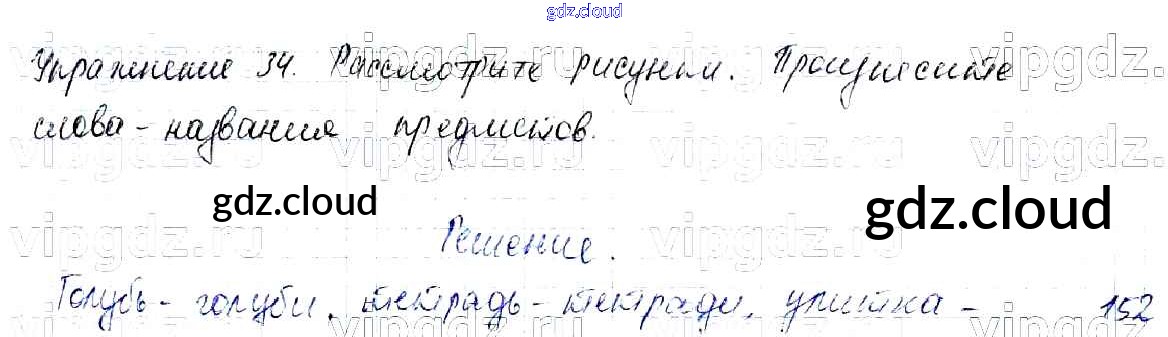 gdz.cloud
Упражнение 34. Рассмотрите рисунки. Произнесите
слова - названия предметов.
gdz.cloud
gdz.cloud
Решение.
Голубь - голуби, тетрадь - тетради, улитка - 152